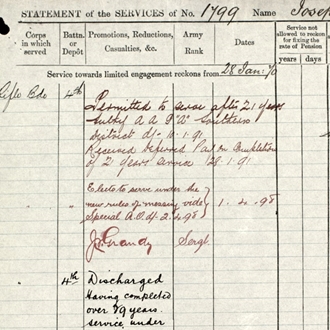 STATEMENT of the SERVICES of No. 1799 Name Joseph
Corps in which served
Battn. or Depôt
Promotions, Reductions, Casualties, &c.
Army Rank
Dates
Service not allowed to reckon for fixing the rate of Pension
years days
Service towards limited engagement reckons from 28 Jan: 70
Rifle Bde 4th Permitted to serve after 21 years
Authy A A G "A" Southern
District d/- 91
Received Deferred Pay on Completion
of 21 years service 28.1.91
Elects to serve under the
new rules of messing vide 1.4.98
Special A.O. of 2.4.98
J. Grandy Sergt
4th Discharged
Having completed
over 29 years
service, under